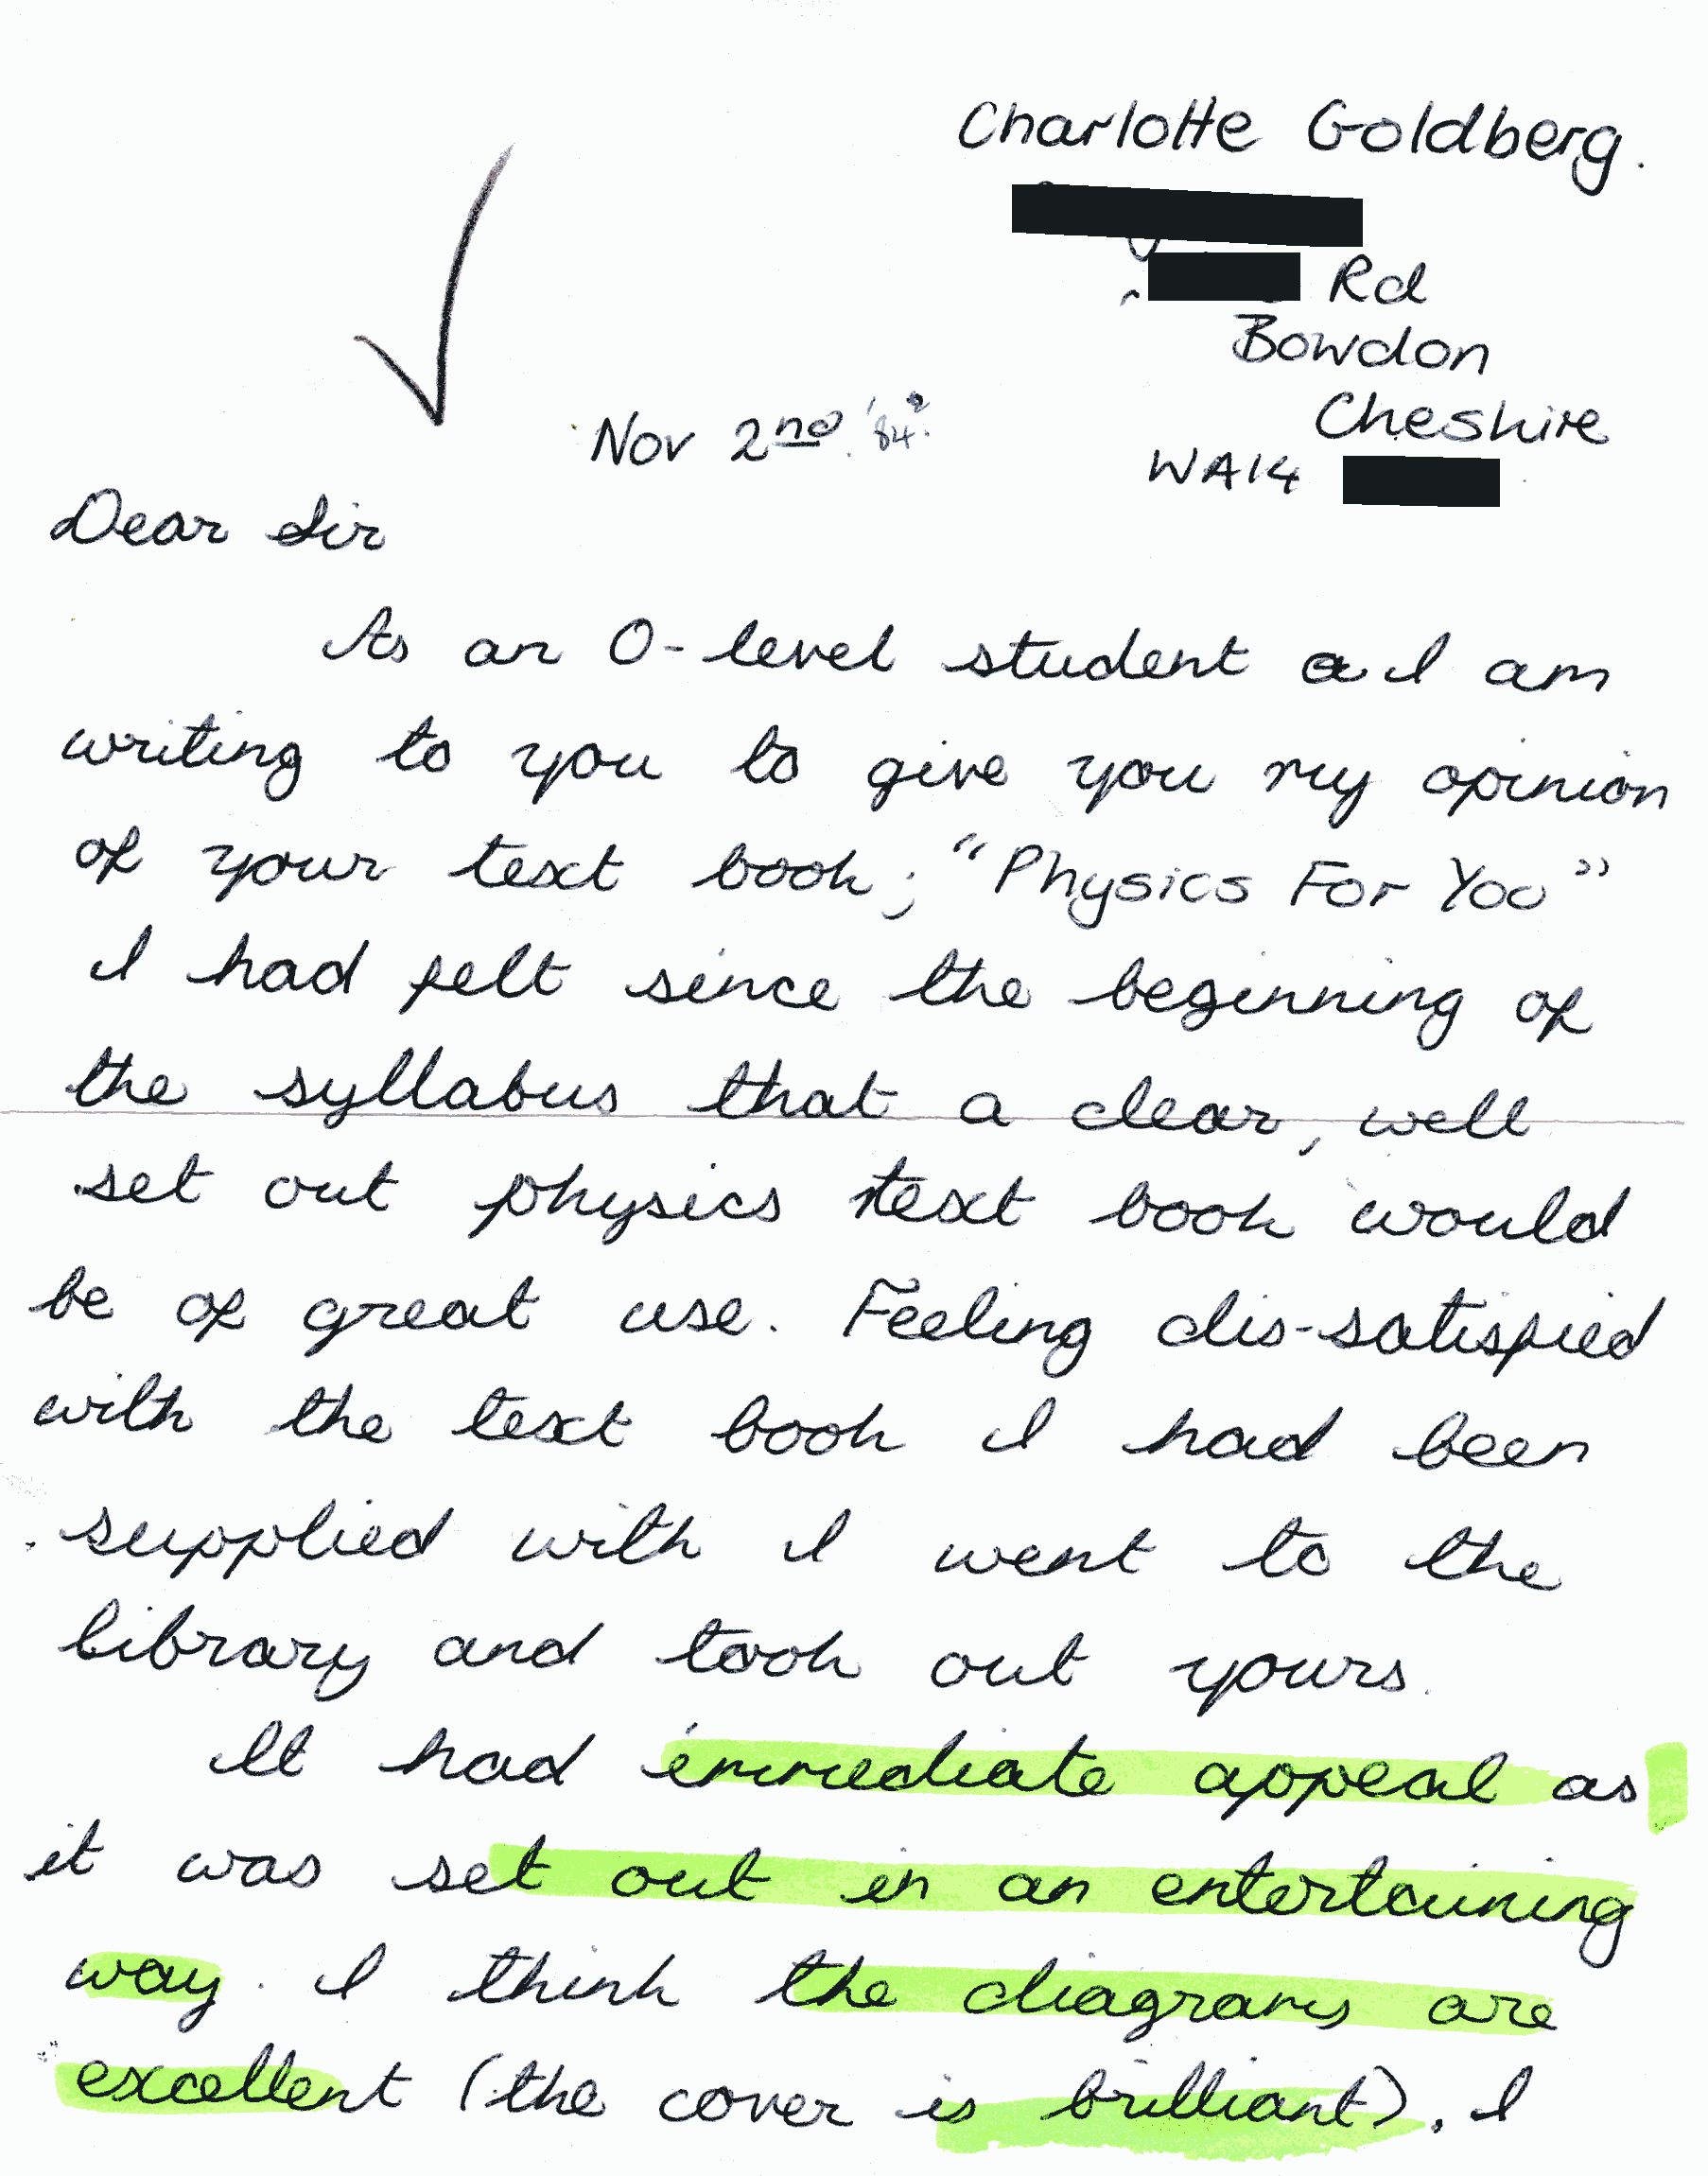 Charlotte Goldberg.
Rd
Bowdon
Cheshire
WA14
Nov 2nd. '84.
Dear Sir
As an O-level student a I am
writing to you to give you my opinion
of your text book; "Physics For You"
I had felt since the beginning of
the syllabus that a clear, well
set out physics text book would
be of great use. Feeling dis-satisfied
with the text book I had been
supplied with I went to the
library and took out yours.
It had immediate appeal as
it was set out in an entertaining
way. I think the diagrams are
excellent (the cover is brilliant). I